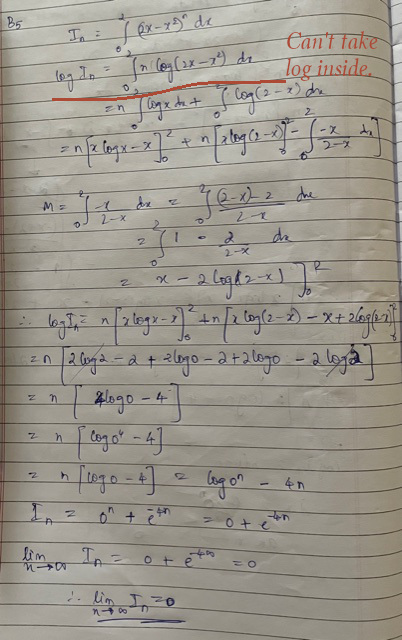 B5
I_n = ∫_0^2 (2x-x²)^n dx
log I_n = ∫_0^2 n log(2x-x²) dx
Can't take
log inside.
= n ∫_0^2 log x dx + ∫_0^2 log(2-x) dx
= n [x log x - x]_0^2 + n [x log(2-x)]_0^2 - ∫_0^2 -x/(2-x) dx]
M = ∫_0^2 -x/(2-x) dx = ∫_0^2 ((2-x)-2)/(2-x) dx
= ∫_0^2 1 - 2/(2-x) dx
= x - 2log(2-x) ]_0^2
∴ log I_n = n [x log x - x]_0^2 + n [x log(2-x) - x + 2log(2-x)]_0^2
= n [2log2 - 2 + 2log0 - 2 + 2log0 - 2log2]
= n [4log0 - 4]
= n [log0⁴ - 4]
= n [log0 - 4] = log0^n - 4n
I_n = 0^n + e^{-4n} = 0 + e^{-4n}
lim_{n→∞} I_n = 0 + e^{-4∞} = 0
∴ lim_{n→∞} I_n = 0